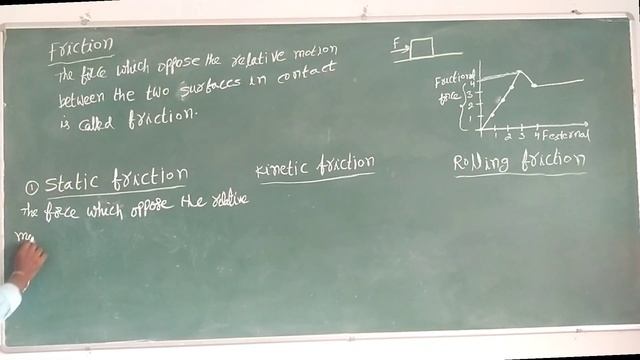 Friction
The force which oppose the relative motion
between the two surfaces in contact
is called friction.
F
Frictional
force
4
3
2
1
1 2 3 4 Festernal
① Static friction
Kinetic friction
Rolling friction
The force which oppose the relative
mo